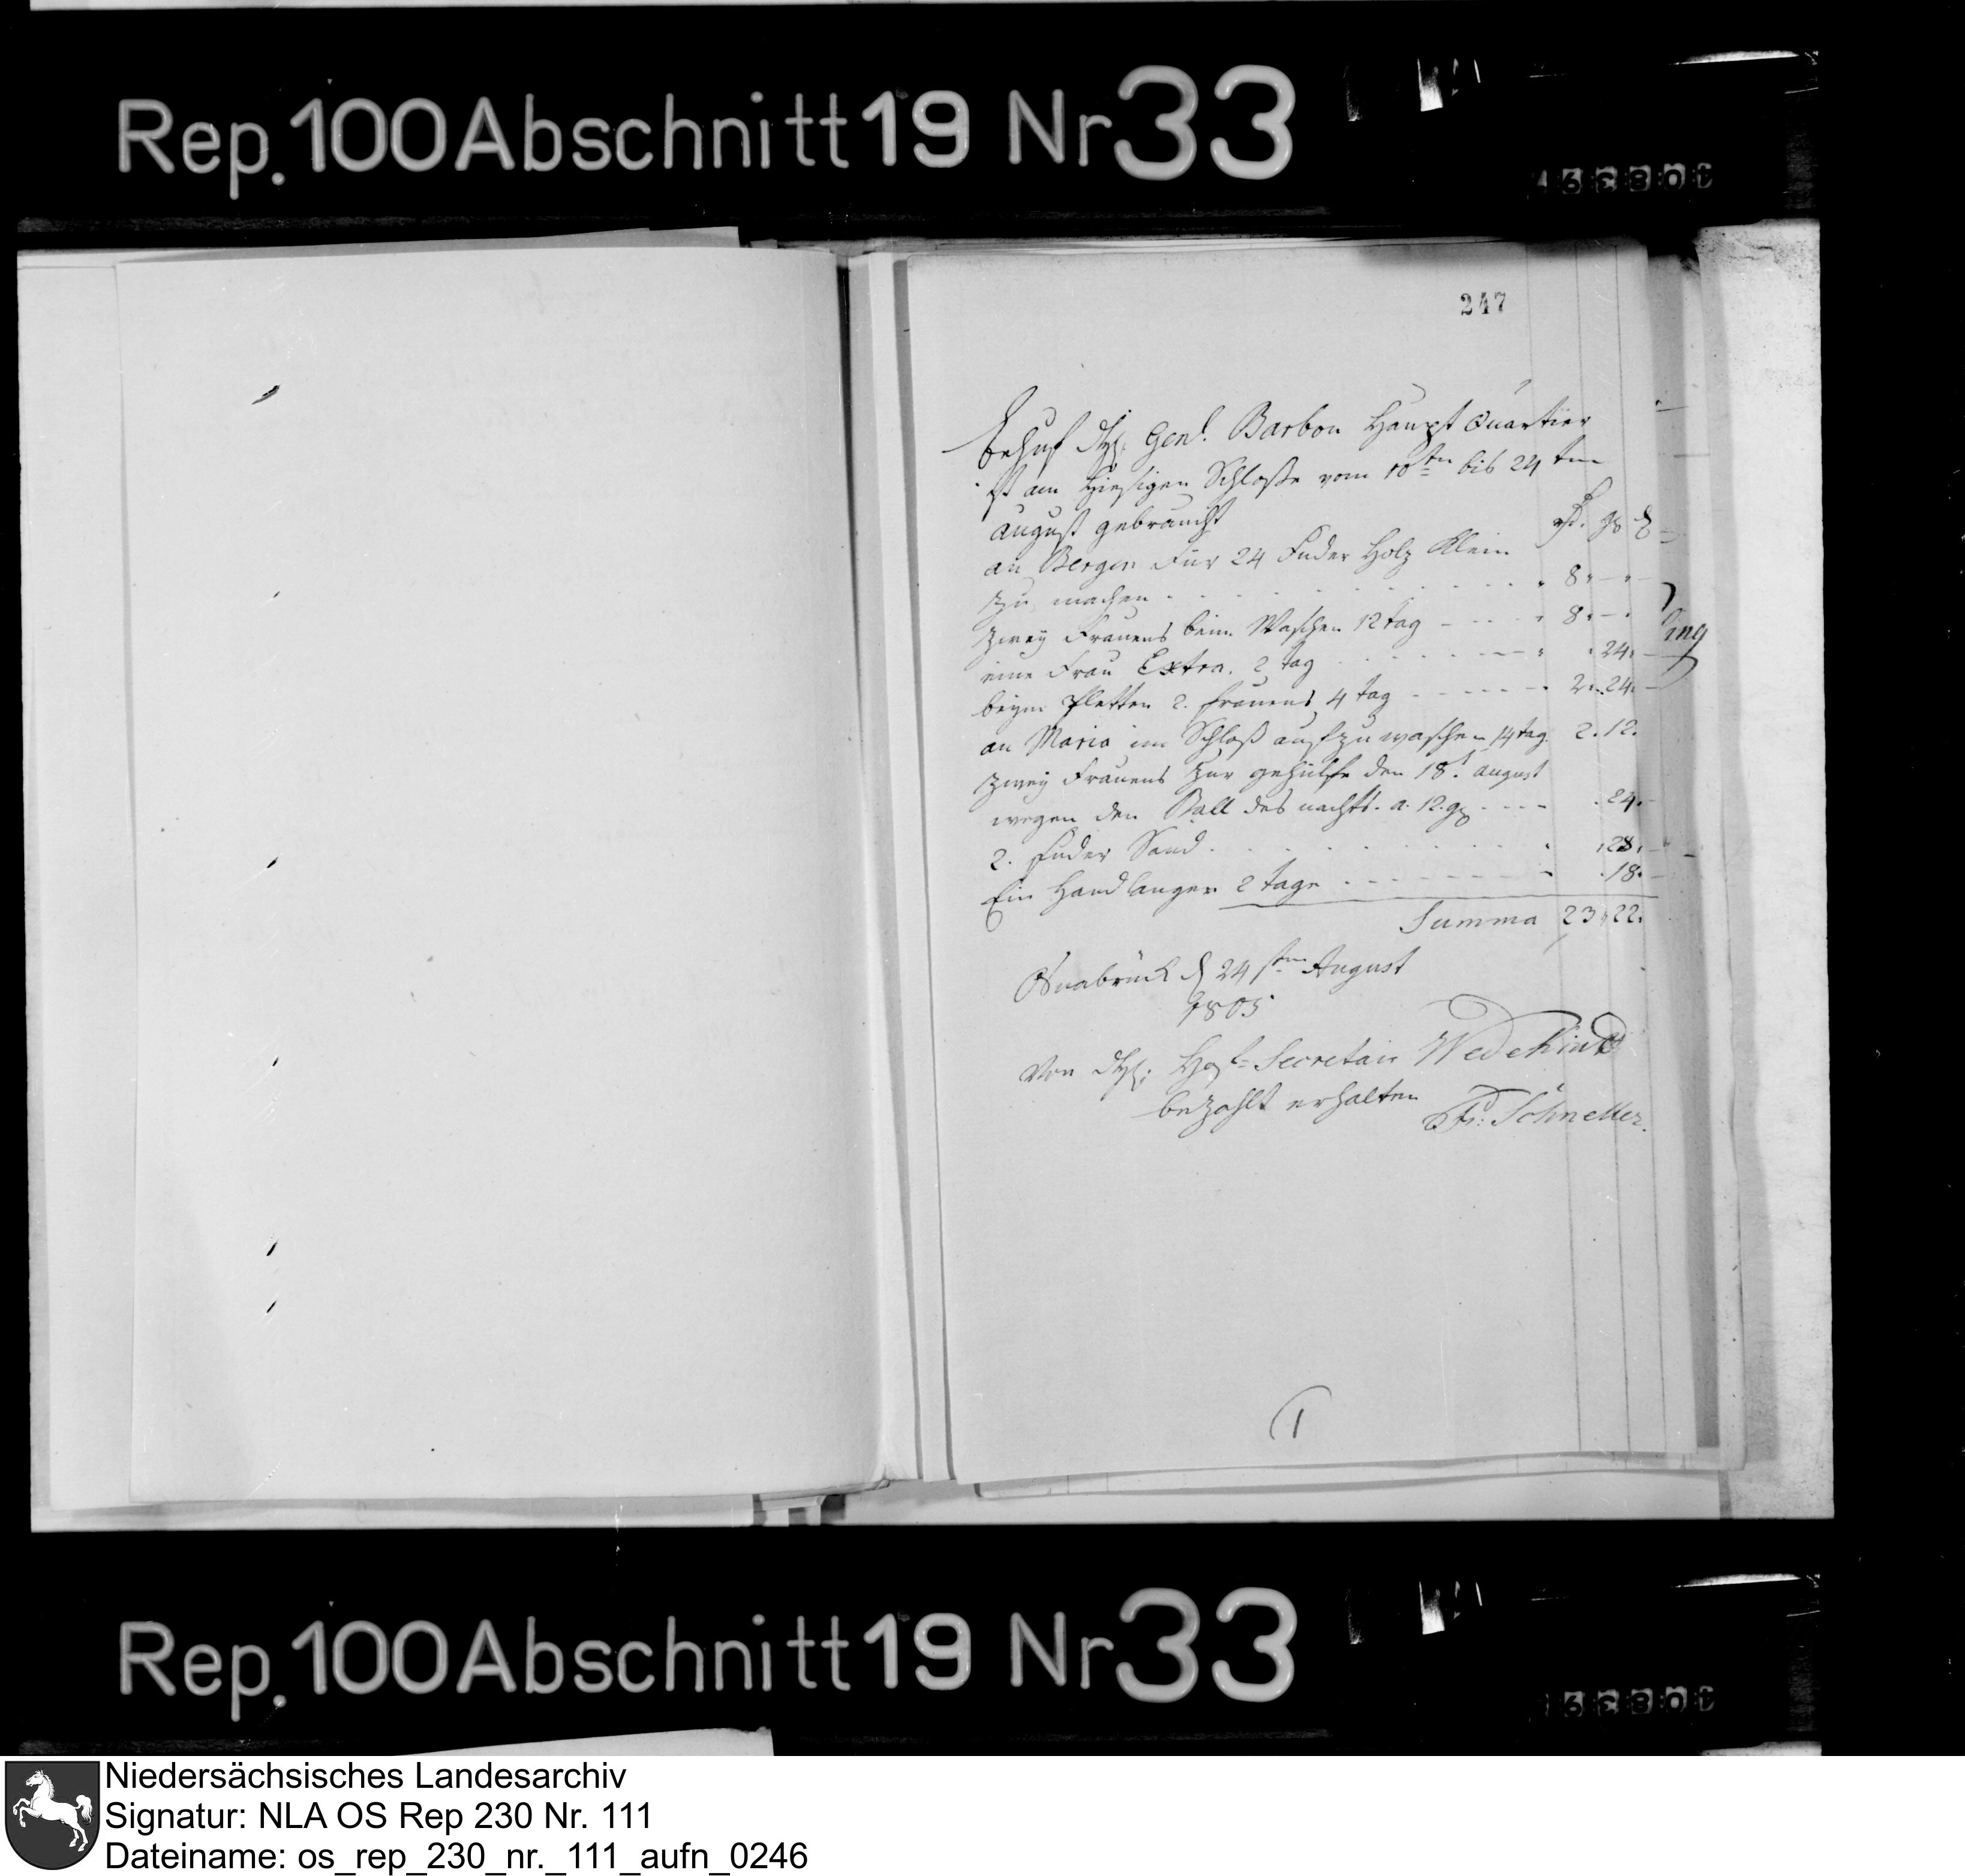 Rep. 100 Abschnitt 19 Nr 33
247
Behuf Gen!. Barbou Haupt Quartier
ist am hiesigen Schloße vom 10ten bis 24ten
August gebraucht
rt. gr
an Bergen Für 24 Fuder Holz Klein
zu machen 8 . —
zwey Frauens beim Waschen 12 tag 8 . —
eine Frau Extra. 2 tag . 24 . —
beym Pletten 2. frauens 4 tag 2 . 24 . —
an Maria im Schloß aufzuwaschen 14 tag. 2 . 12 .
zwey Frauens zur gehülfe den 18t August
wegen den Ball des nachts. a. 12. gr . 24 . —
2. fuder Sand . 28 . —
Ein Handlanger 2 tage . 18 . —
Summa 23 . 22 .
ing
Osnabrück d 24sten August
1805
Von Secretair Wedekind
bezahlt erhalten
Fr: Schneller.
1
Rep. 100 Abschnitt 19 Nr 33
Niedersächsisches Landesarchiv
Signatur: NLA OS Rep 230 Nr. 111
Dateiname: os_rep_230_nr._111_aufn_0246